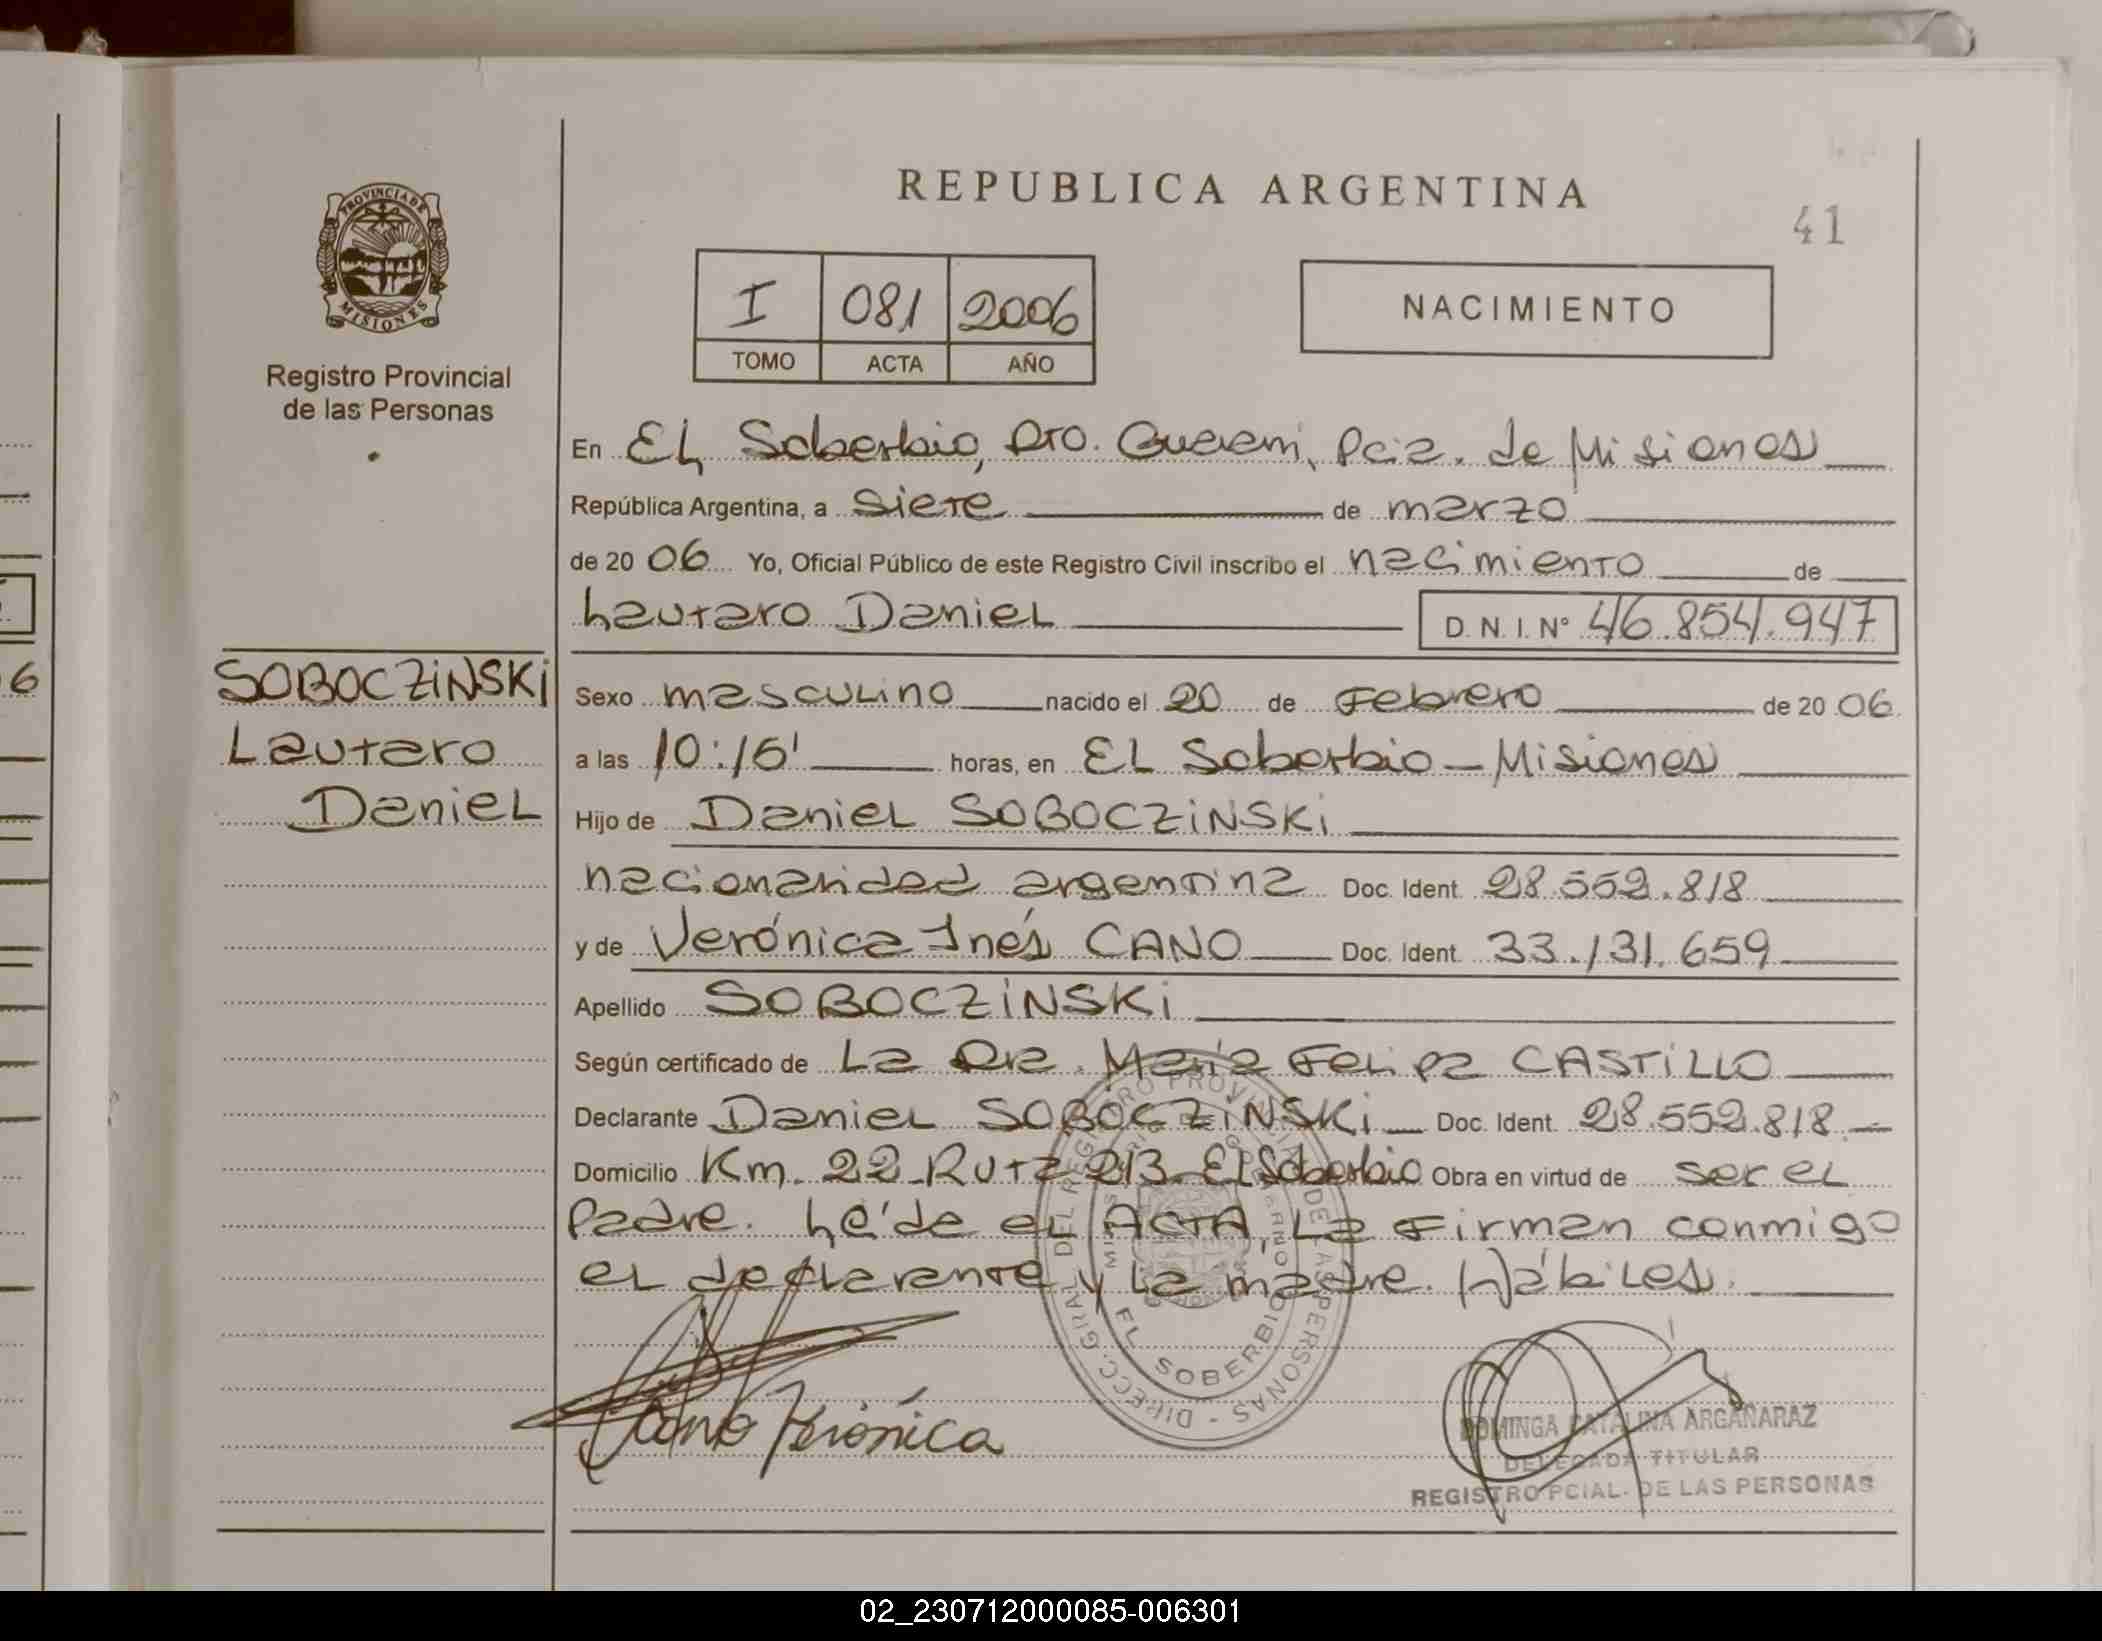 PROVINCIA DE
MISIONES
Registro Provincial
de las Personas
REPUBLICA ARGENTINA
41
I 081 2006
TOMO ACTA AÑO
NACIMIENTO
En EL Soberbio, Dto. Guarani, Pcia. de Misiones
República Argentina, a siete de marzo
de 20 06 Yo, Oficial Público de este Registro Civil inscribo el nacimiento de
Lautaro Daniel D. N. I. Nº 46.854.947
SOBOCZiNSKi
Lautaro
Daniel
Sexo masculino nacido el 20 de Febrero de 20 06
a las 10:15' horas, en EL Soberbio - Misiones
Hijo de Daniel SOBOCZiNSKi
nacionalidad argentina Doc. Ident. 28.552.818
y de Verónica Inés CANO Doc. Ident. 33.131.659
Apellido SOBOCZiNSKi
Según certificado de La Dra. María Felipa CASTiLLO
Declarante Daniel SOBOCZiNSKi Doc. Ident. 28.552.818
Domicilio Km. 22 - Ruta 213 - El Soberbio Obra en virtud de ser el
Padre. Leída el ACTA, la firman conmigo
el declarante y la madre. Hábiles.
DIRECC. GRAL DEL REGISTRO PROVINCIAL DE LAS PERSONAS -
EL SOBERBIO
Cano Verónica
DOMINGA CATALINA ARGAÑARAZ
DELEGADA TITULAR
REGISTRO PCIAL. DE LAS PERSONAS
6
02_230712000085-006301